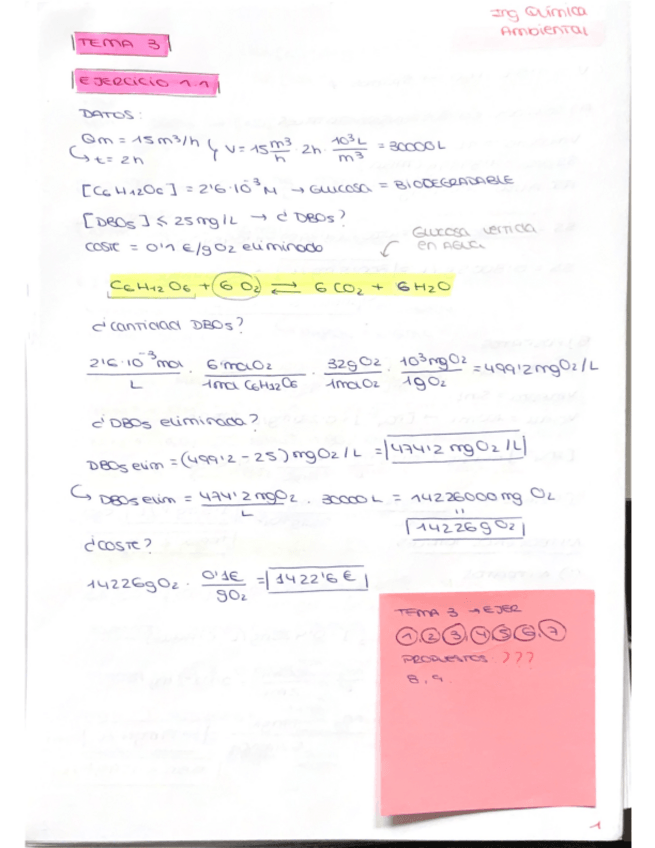 Ing Química
Ambiental
TEMA 3
EJERCICIO 1.1
DATOS:
Qm = 15 m³/h
t = 2h
V = 15 m³/h · 2h · 10³L/m³ = 30000L
[C6H12O6] = 2'6·10⁻³ M → Glucosa = BIODEGRADABLE
[DBO5] ≤ 25 mg/L → ¿DBO5?
COSTE = 0'1 €/g O2 eliminado
Glucosa vertida
en agua
C6H12O6 + 6 O2 ⇌ 6 CO2 + 6 H2O
¿Cantidad DBO5?
2'6·10⁻³ mol/L · 6 mol O2/1 mol C6H12O6 · 32g O2/1 mol O2 · 10³ mg O2/1g O2 = 499'2 mg O2/L
¿DBO5 eliminada?
DBO5 elim = (499'2 - 25) mg O2/L = 474'2 mg O2/L
DBO5 elim = 474'2 mg O2/L · 30000 L = 14226000 mg O2
"
14226 g O2
¿COSTE?
14226 g O2 · 0'1€/g O2 = 1422'6 €
TEMA 3 → EJER
1, 2, 3, 4, 5, 6, 7
PROPUESTOS ???
8, 9.
1